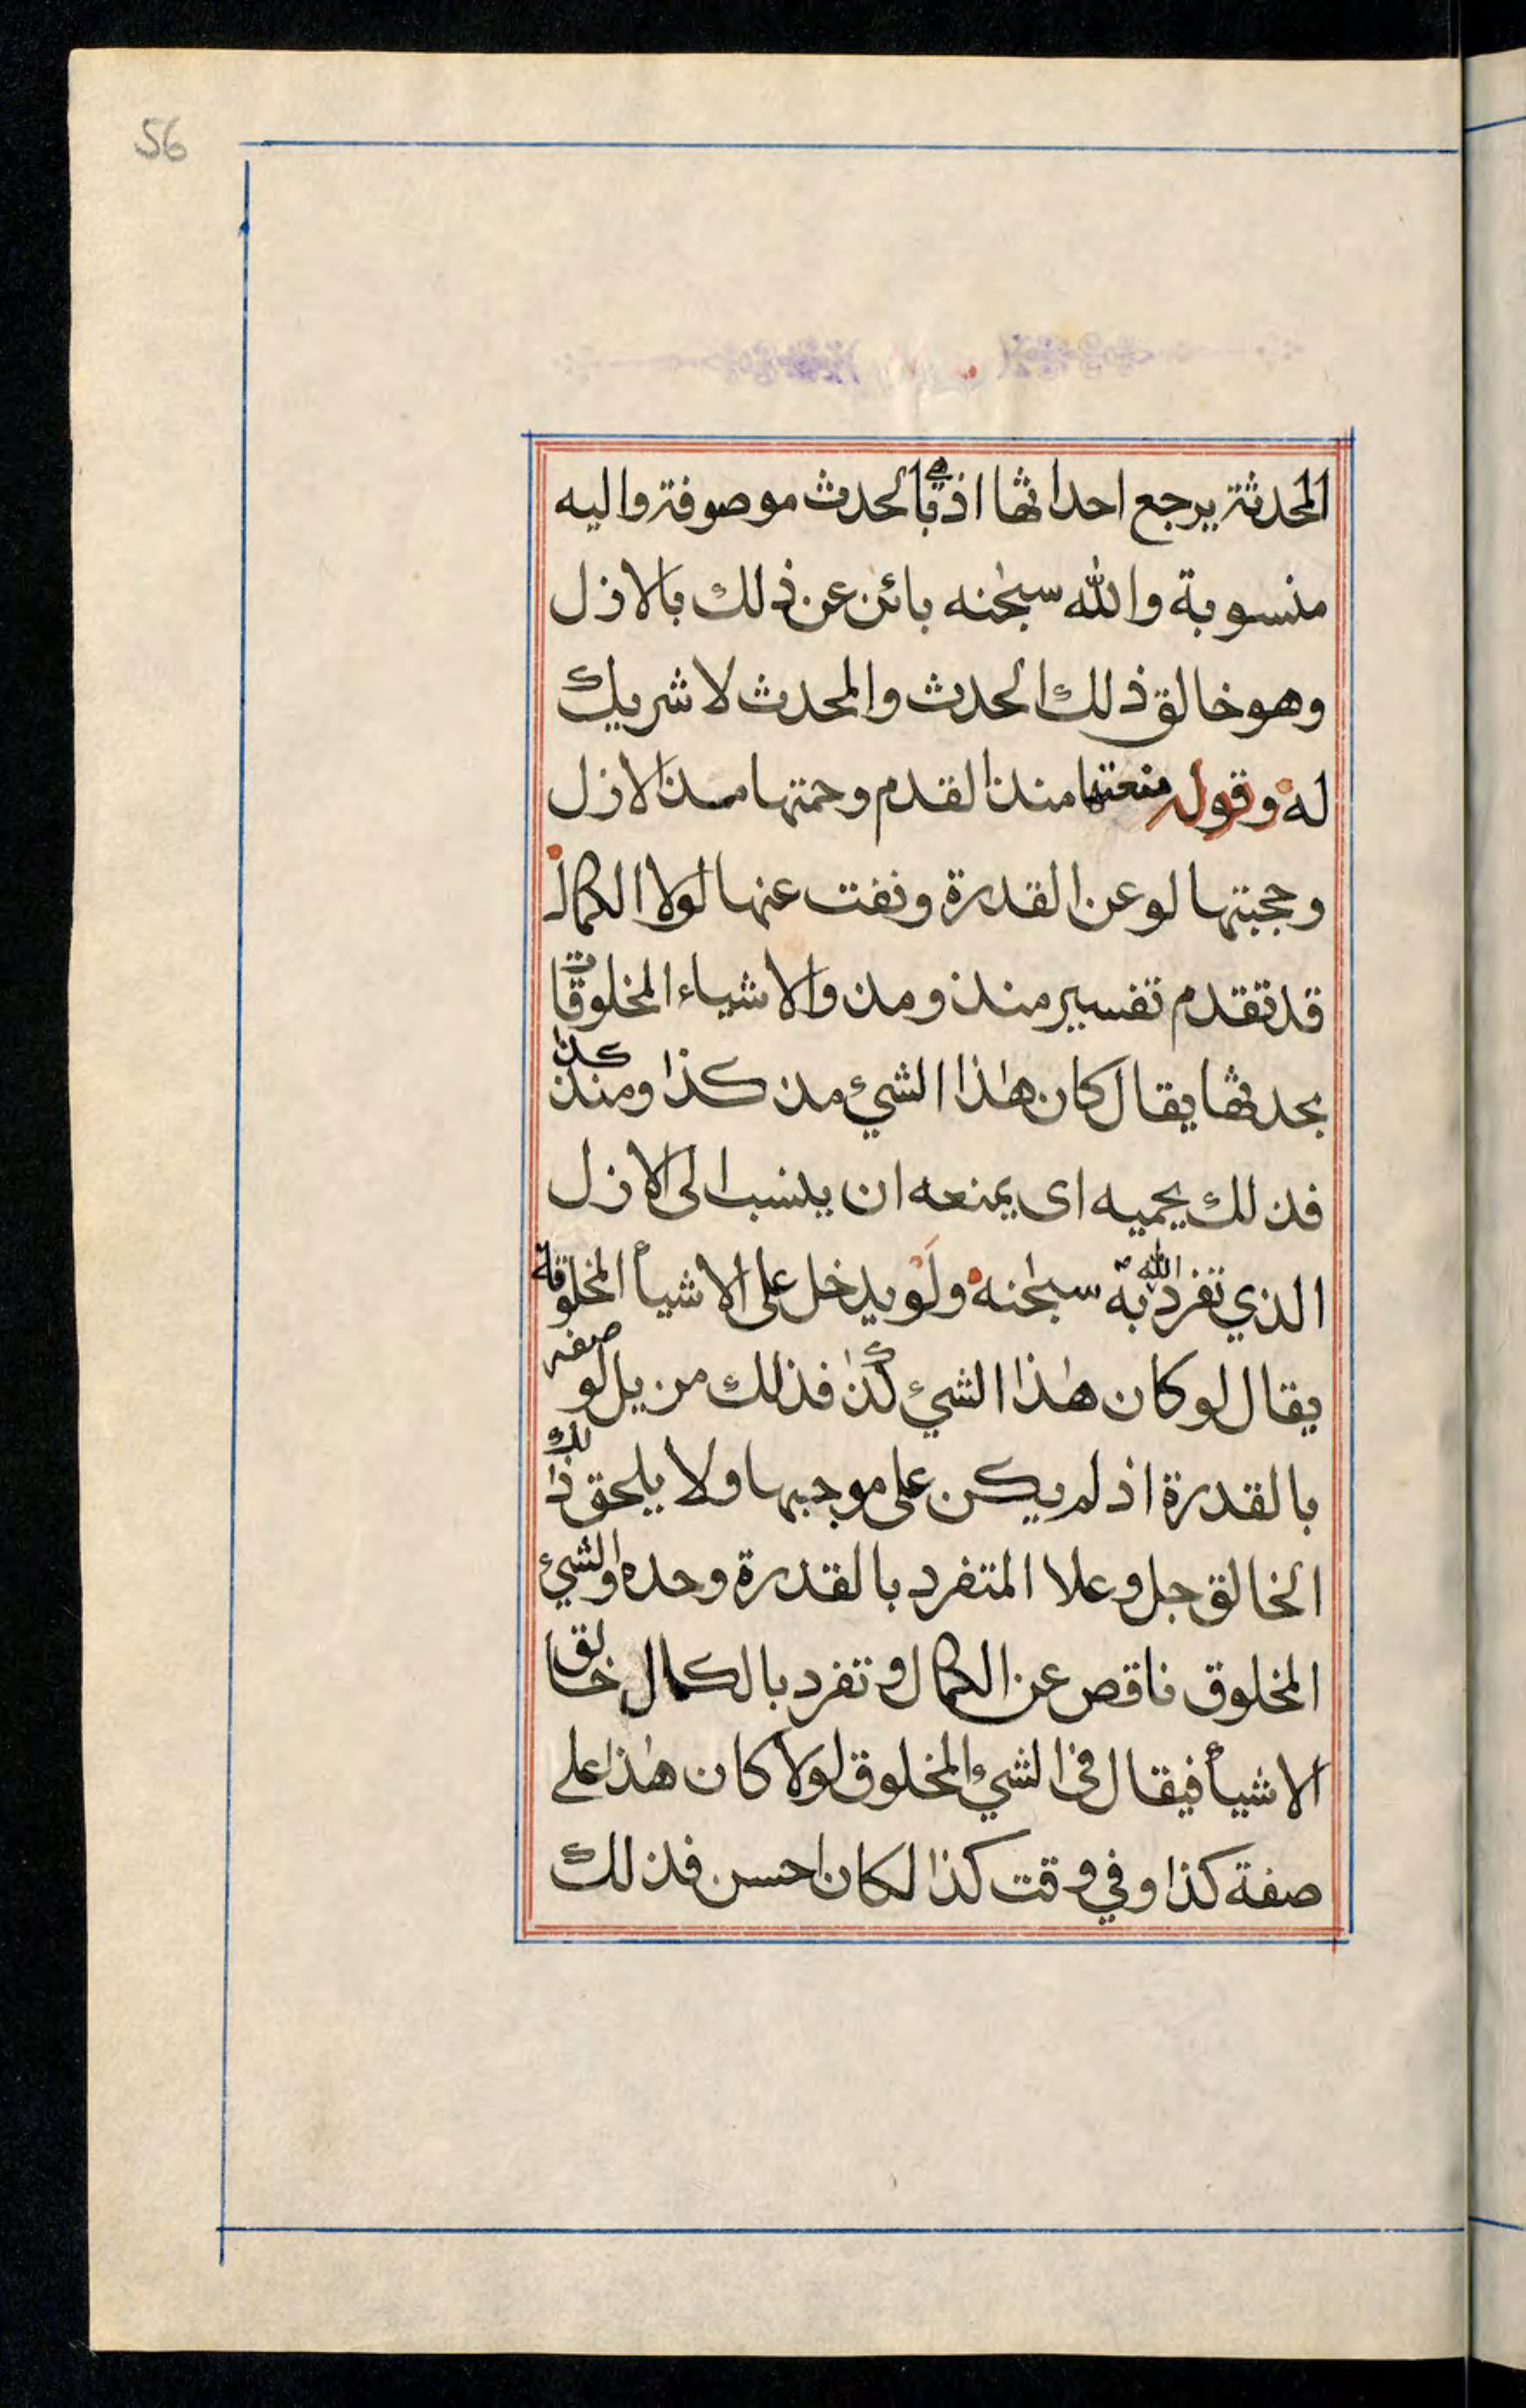 56
المحدثة يرجع احداثها اذ هي بالحدث موصوفة واليه
منسوبة والله سبحٰنه بائن عن ذلك بالازل
وهو خالق ذلك الحدث والمحدث لا شريك
له وقوله منعتها منذ القدم وحمتها مذ الازل
وحجبتها لو عن القدرة ونفت عنها لولا الكمال
قد تقدم تفسير منذ ومذ والاشياء المخلوقات
بحدثها يقال كان هٰذا الشيء مذ كذا ومنذ كذا
فذلك يحميه اى يمنعه ان ينسب الى الازل
الذي تفرد الله به سبحٰنه ولو يدخل على الاشيأ المخلوقة
يقال لو كان هٰذا الشيء كذا فذلك مزيل لوصفه
بالقدرة اذ لم يكن على موجبها ولا يلحق ذلك
الخالق جل وعلا المتفرد بالقدرة وحده والشيء
المخلوق ناقص عن الكمال وتفرد بالكمال خالق
الاشيأ فيقال في الشيء المخلوق لولا كان هٰذا على
صفة كذا وفي وقت كذا لكان احسن فذلك